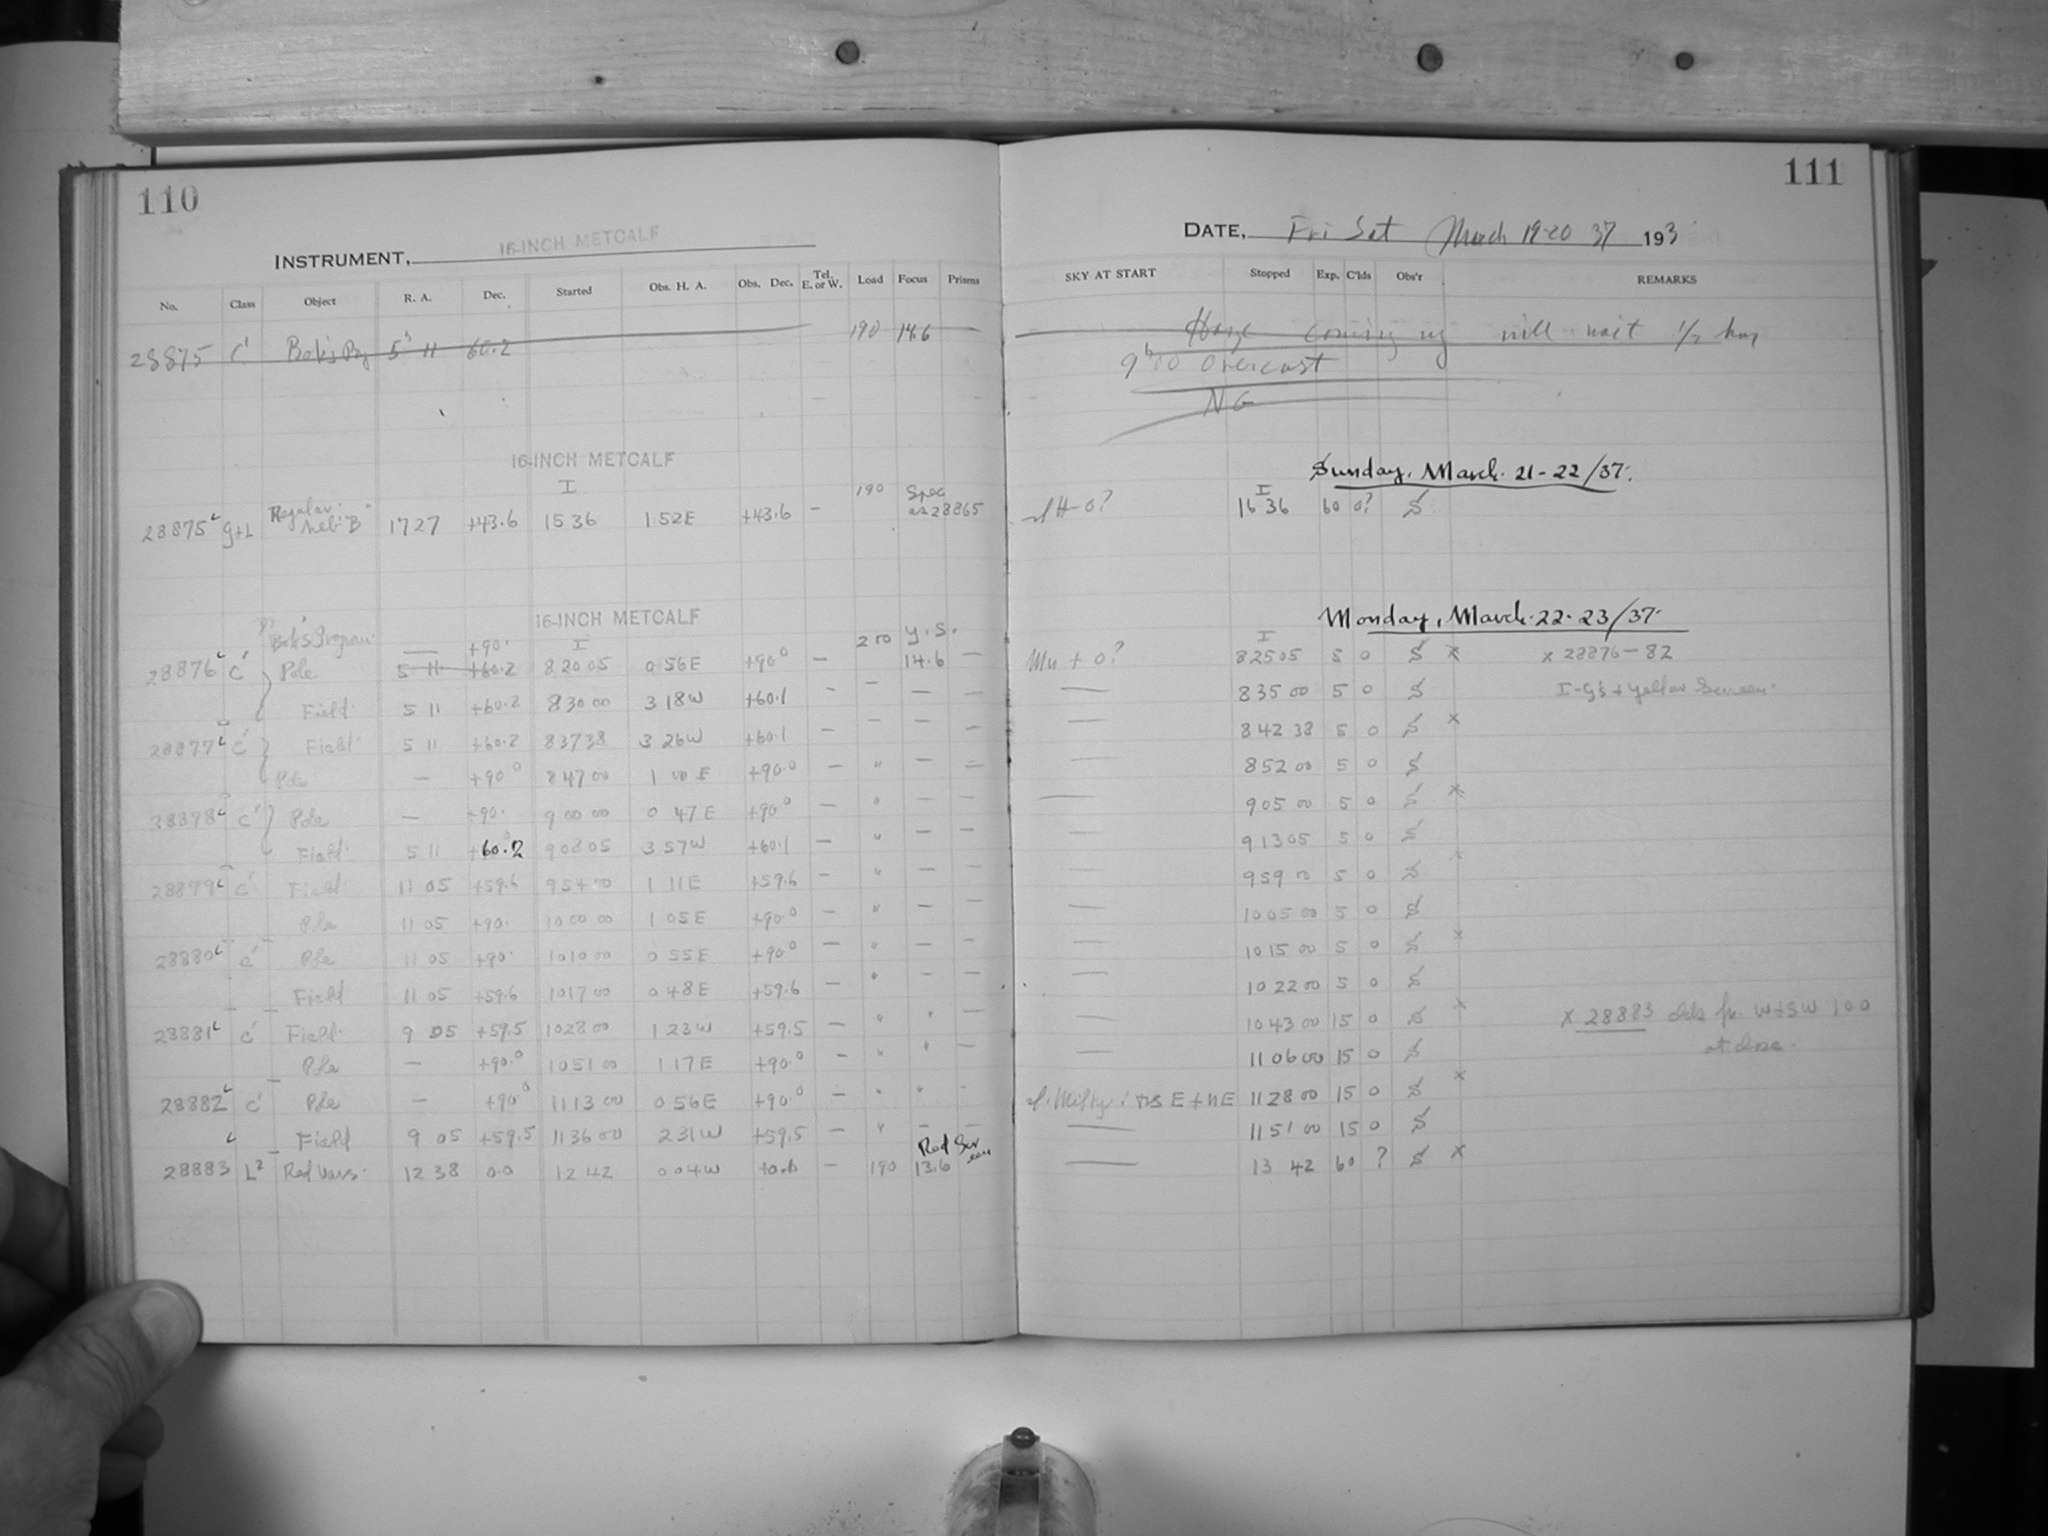 110
INSTRUMENT, 16-INCH METCALF
No. Class Object R. A. Dec. Started Obs. H. A. Obs. Dec. Tel. E. or W. Load Focus Prisms
28875 C' Bok's 5h 11 60.2 190 14.6
16-INCH METCALF
28875 Regular 17 27 +43.6 I 15 36 1 52E +43.6 - 190 Spec as 28865
16-INCH METCALF
Bok's Program
28876 C' Pole — +90. 5 11 +60.2 I 8 20 05 0 56E +90° — 200 Y.S. 14.6 —
Field 5 11 +60.2 8 30 00 3 18W +60.1 - —
28877 C' Field 5 11 +60.2 8 37 38 3 26W +60.1 — — — —
Pole — +90° 8 47 00 1 00 E +90.0 — " — —
28878 C' Pole — +90. 9 00 00 0 47 E +90° — " — —
Field 5 11 +60.2 9 08 05 3 57W +60.1 — " — —
28879 C' Field 11 05 +59.6 9 54 00 1 11E +59.6 — " — —
Pole 11 05 +90. 10 00 00 1 05E +90.0 — " — —
28880 C' Pole 11 05 +90. 10 10 00 0 55E +90° — " — —
Field 11 05 +59.6 10 17 00 0 48E +59.6 — " — —
28881 C' Field 9 05 +59.5 10 28 00 1 23W +59.5 — " " —
Pole — +90.0 10 51 00 1 17E +90.0 — " " —
28882 C' Pole — +90° 11 13 00 0 56E +90.0 — " "
Field 9 05 +59.5 11 36 00 2 31W +59.5 — " — —
28883 L2 Red Vars. 12 38 0.0 12 42 0 04W +0.0 — 190 Red Screen 13.6
111
DATE, Fri Sat March 19-20 37 193
SKY AT START Stopped Exp. C'lds Obs'r REMARKS
Haze coming up will wait 1/2 hour
9h00 Overcast
NG
Sunday, March 21-22/37.
I 16 36 60 0? S
Monday, March 22-23/37.
Mn + 0? I 8 25 05 5 0 S x x 28876-82
— 8 35 00 5 0 S I-G's + Yellow Screen.
— 8 42 38 5 0 S x
— 8 52 00 5 0 S
— 9 05 00 5 0 S x
— 9 13 05 5 0 S
— 9 59 00 5 0 S x
— 10 05 00 5 0 S
— 10 15 00 5 0 S x
— 10 22 00 5 0 S
— 10 43 00 15 0 S x x 28883 W+SW 100
— 11 06 00 15 0 S at close.
E+NE 11 28 00 15 0 S x
— 11 51 00 15 0 S
— 13 42 60 ? S x